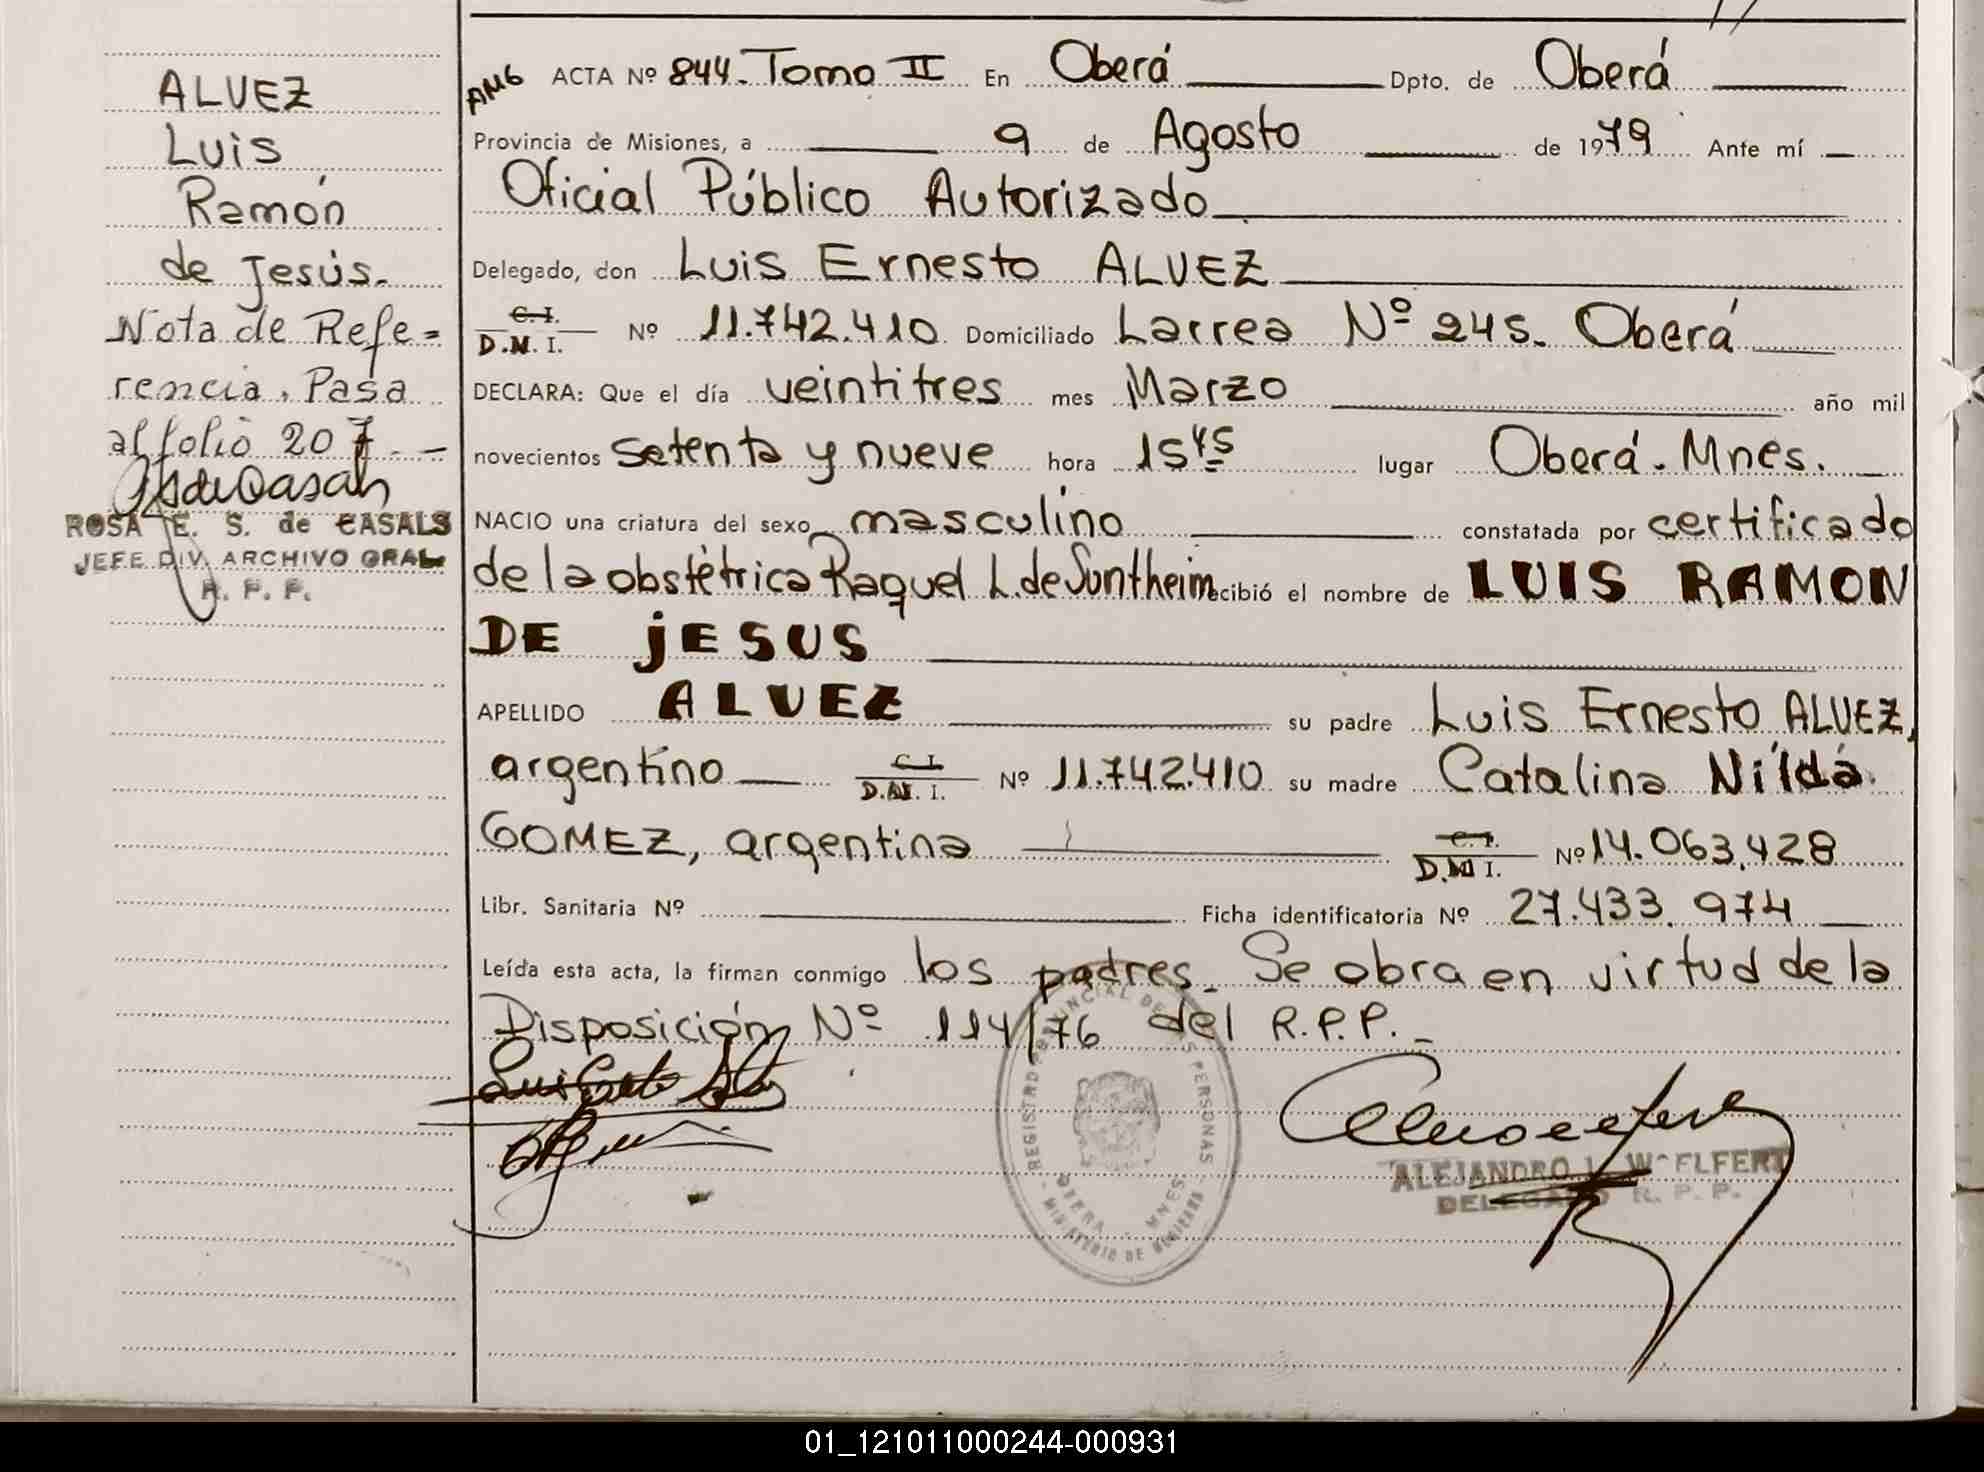 ALVEZ
Luis
Ramón
de Jesús.
Nota de Refe=
rencia, Pasa
al folio 207.-
ROSA E. S. de CASALS
JEFE DIV. ARCHIVO GRAL.
R. P. P.
AMG ACTA Nº 844. Tomo II En Oberá Dpto. de Oberá
Provincia de Misiones, a 9 de Agosto de 1979 Ante mí
Oficial Público Autorizado
Delegado, don Luis Ernesto ALVEZ
C.I.
D.N.I. Nº 11.742.410 Domiciliado Larrea Nº 245. Oberá
DECLARA: Que el día veintitres mes Marzo año mil
novecientos setenta y nueve hora 15 45 lugar Oberá. Mnes.
NACIO una criatura del sexo masculino constatada por certificado
de la obstétrica Raquel L. de Suntheim recibió el nombre de LUIS RAMON
DE JESUS
APELLIDO ALVEZ su padre Luis Ernesto ALVEZ,
argentino C.I. D.N.I. Nº 11.742.410 su madre Catalina Nilda
GOMEZ, argentina C.I. D.N.I. Nº 14.063.428
Libr. Sanitaria Nº Ficha identificatoria Nº 27.433.974
Leída esta acta, la firman conmigo los padres. Se obra en virtud de la
Disposición Nº 114/76 del R.P.P.
REGISTRO PROVINCIAL DE LAS PERSONAS
OBERA - MNES
MINISTERIO DE
ALEJANDRO L. WELFERT
DELEGADO R. P. P.
01_121011000244-000931